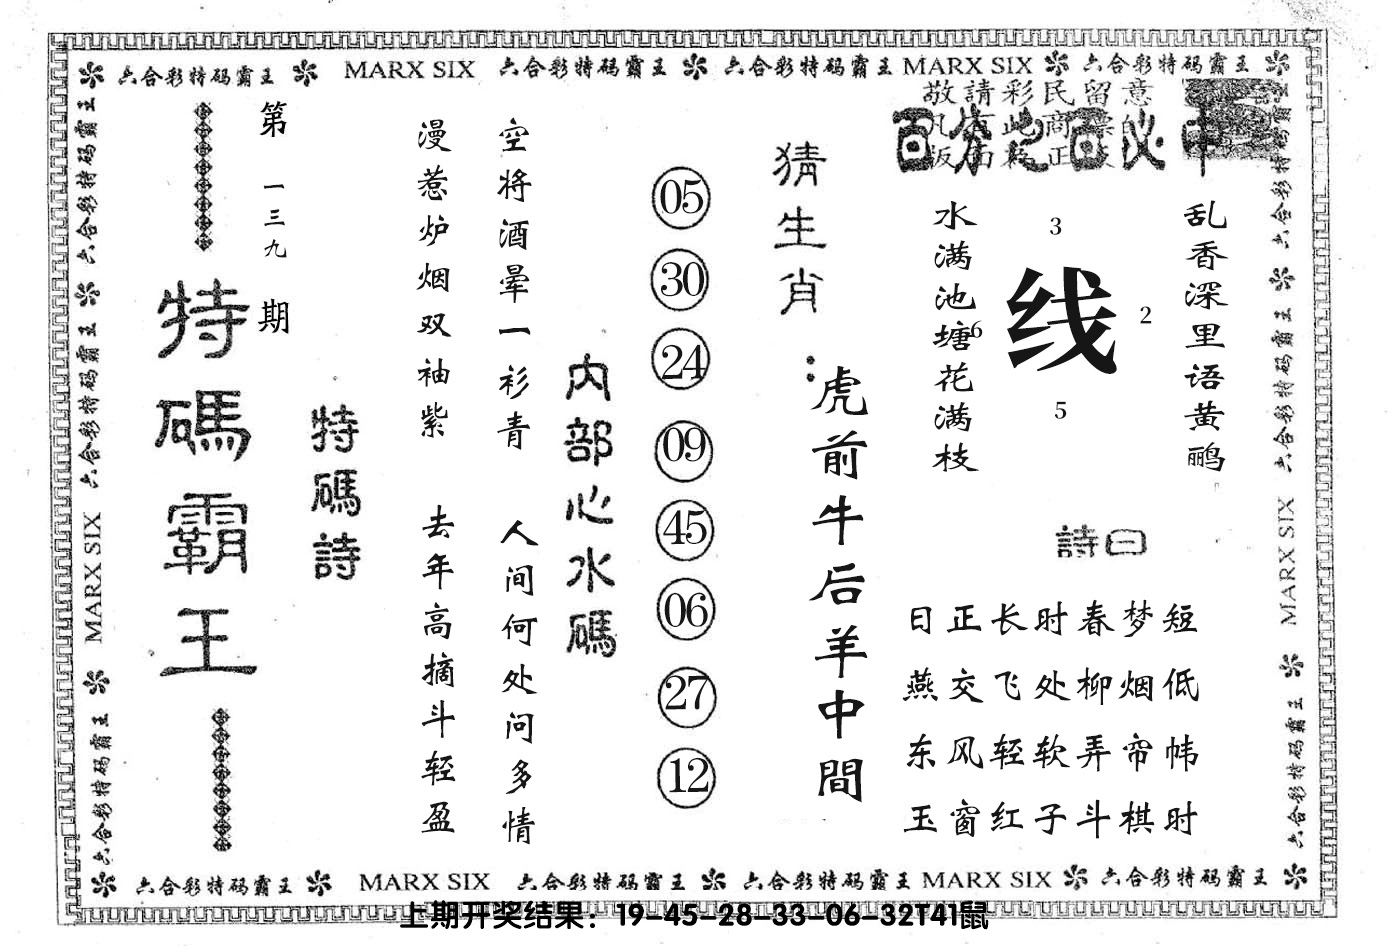 六合彩特码霸王 MARX SIX 六合彩特码霸王 六合彩特码霸王 MARX SIX 六合彩特码霸王
六合彩特码霸王 六合彩特码霸王 MARX SIX 六合彩特码霸王
六合彩特码霸王 六合彩特码霸王 MARX SIX 六合彩特码霸王
敬請彩民留意
百分之百必中
乱香深里语黄鹂
水满池塘花满枝
3
线
2
6
5
詩曰
日正长时春梦短
燕交飞处柳烟低
东风轻软弄帘帏
玉窗红子斗棋时
猜生肖：
虎前牛后羊中間
05
30
24
09
45
06
27
12
内部心水碼
空将酒晕一衫青
人间何处问多情
漫惹炉烟双袖紫
去年高摘斗轻盈
特碼詩
第一三九期
特碼霸王
六合彩特码霸王 MARX SIX 六合彩特码霸王 六合彩特码霸王 MARX SIX 六合彩特码霸王
上期开奖结果：19-45-28-33-06-32T41鼠